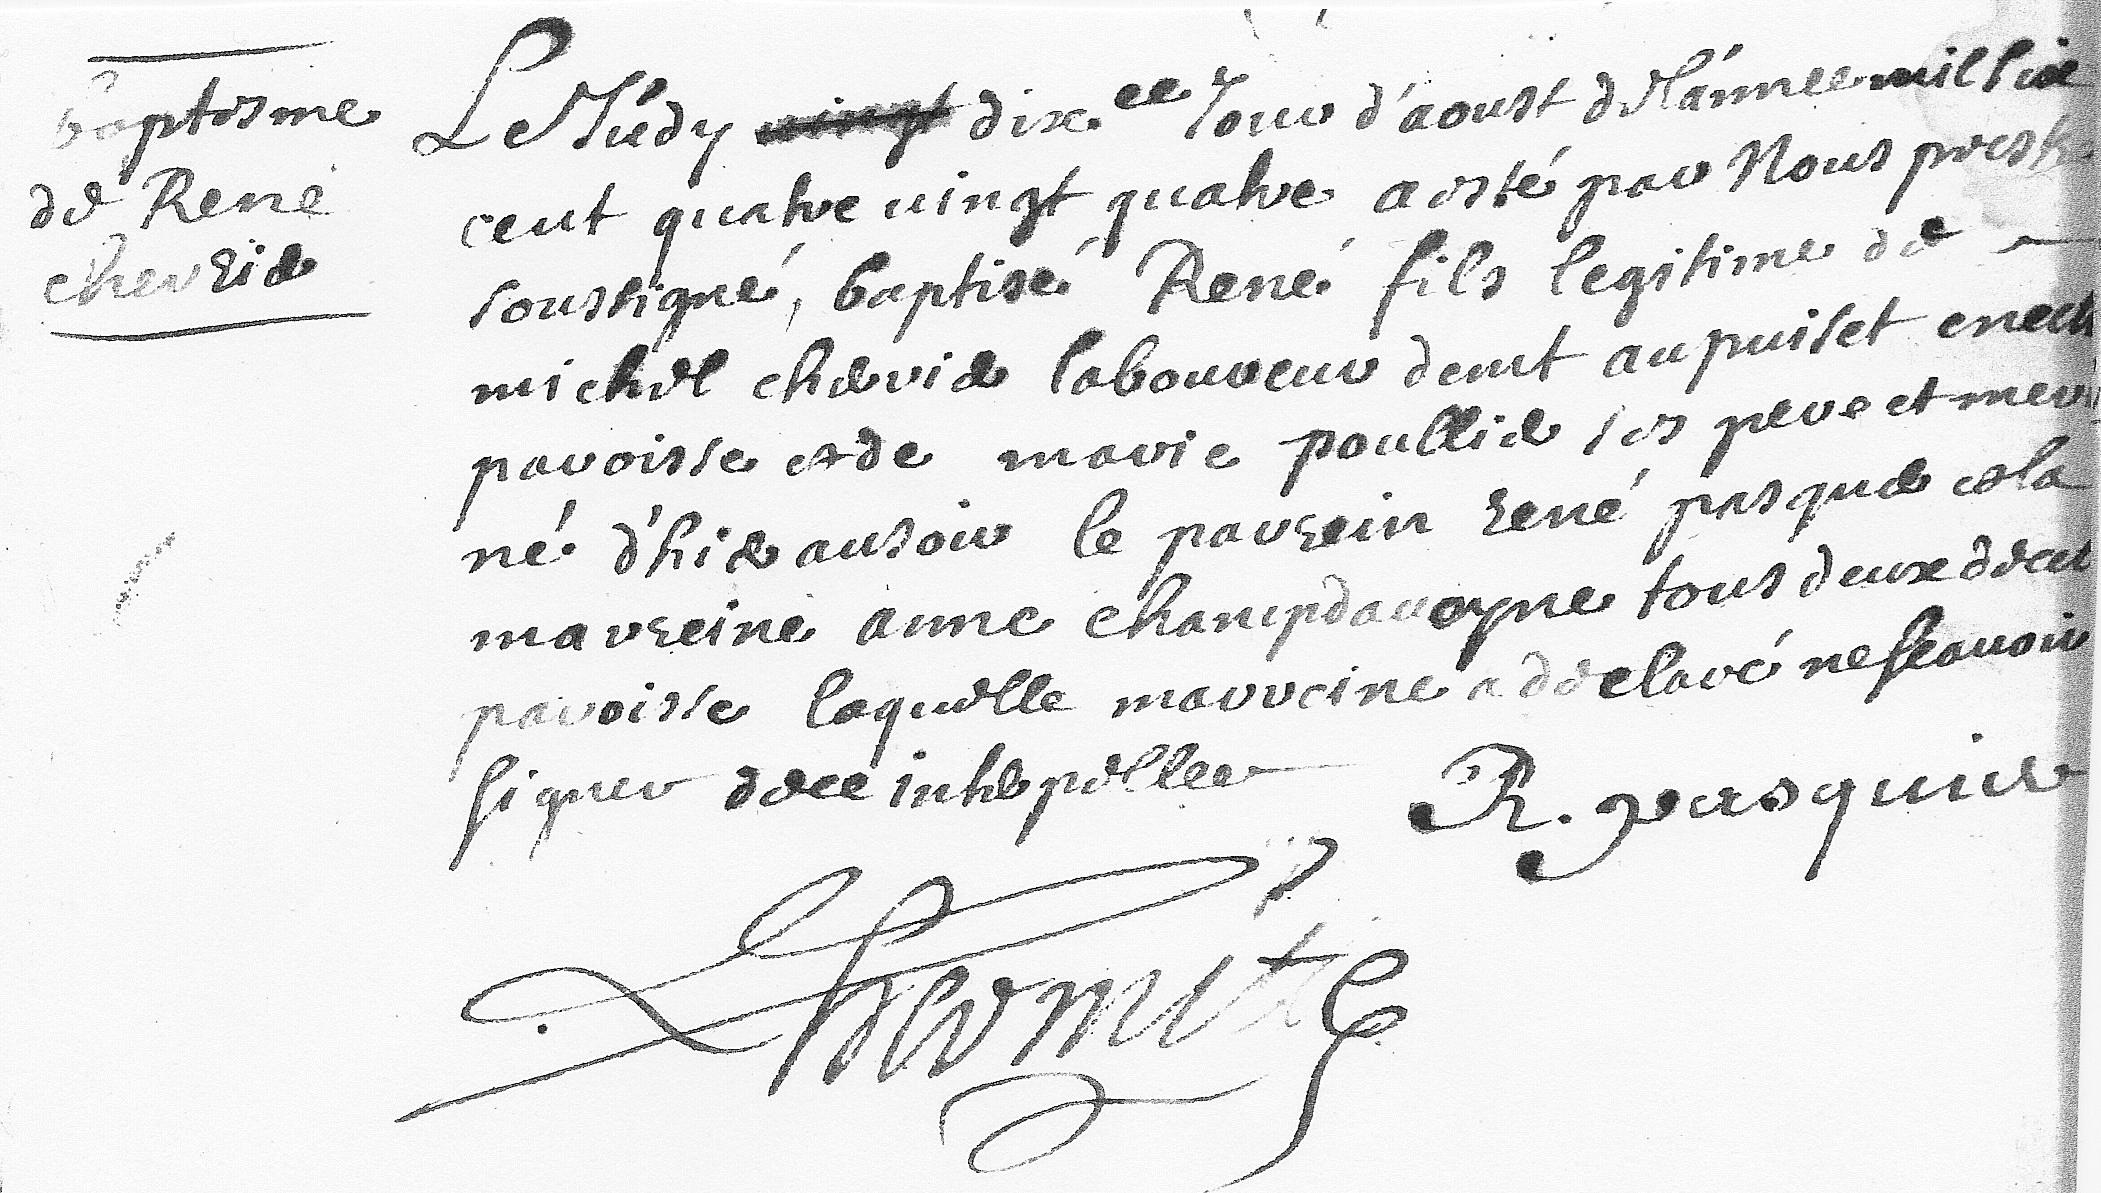 baptesme
de René
cherrier
Le Jeudy vingt dix.ee Jour d'aoust de l'année mil six
cent quatre vingt quatre a esté par Nous prestre
soussigné, baptisé René fils legitime de
michel cherier laboureur demt au puiset en cette
paroisse et de marie poullier ses pere et mere
né d'hier au soir le parrein rené pasquer et la
marreine anne champdavoyne tous deux de cet
paroisse laquelle marreine a declaré ne scavoir
signer de ce interpellee
R. pasquier